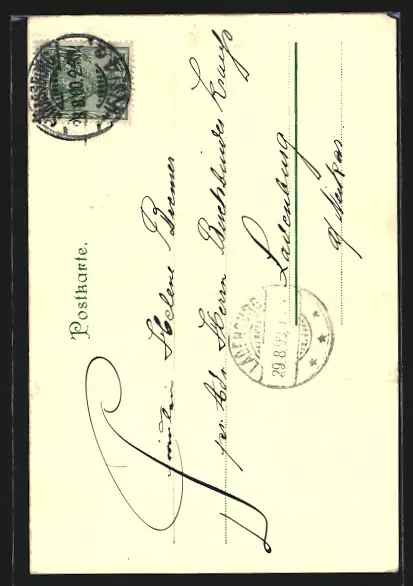 Postkarte.
Fräulein Helene Bremer
pr. Adr. Herrn Buchbinder Kraus
Ladenburg
a/Neckar
LADENBURG
29.8.99.